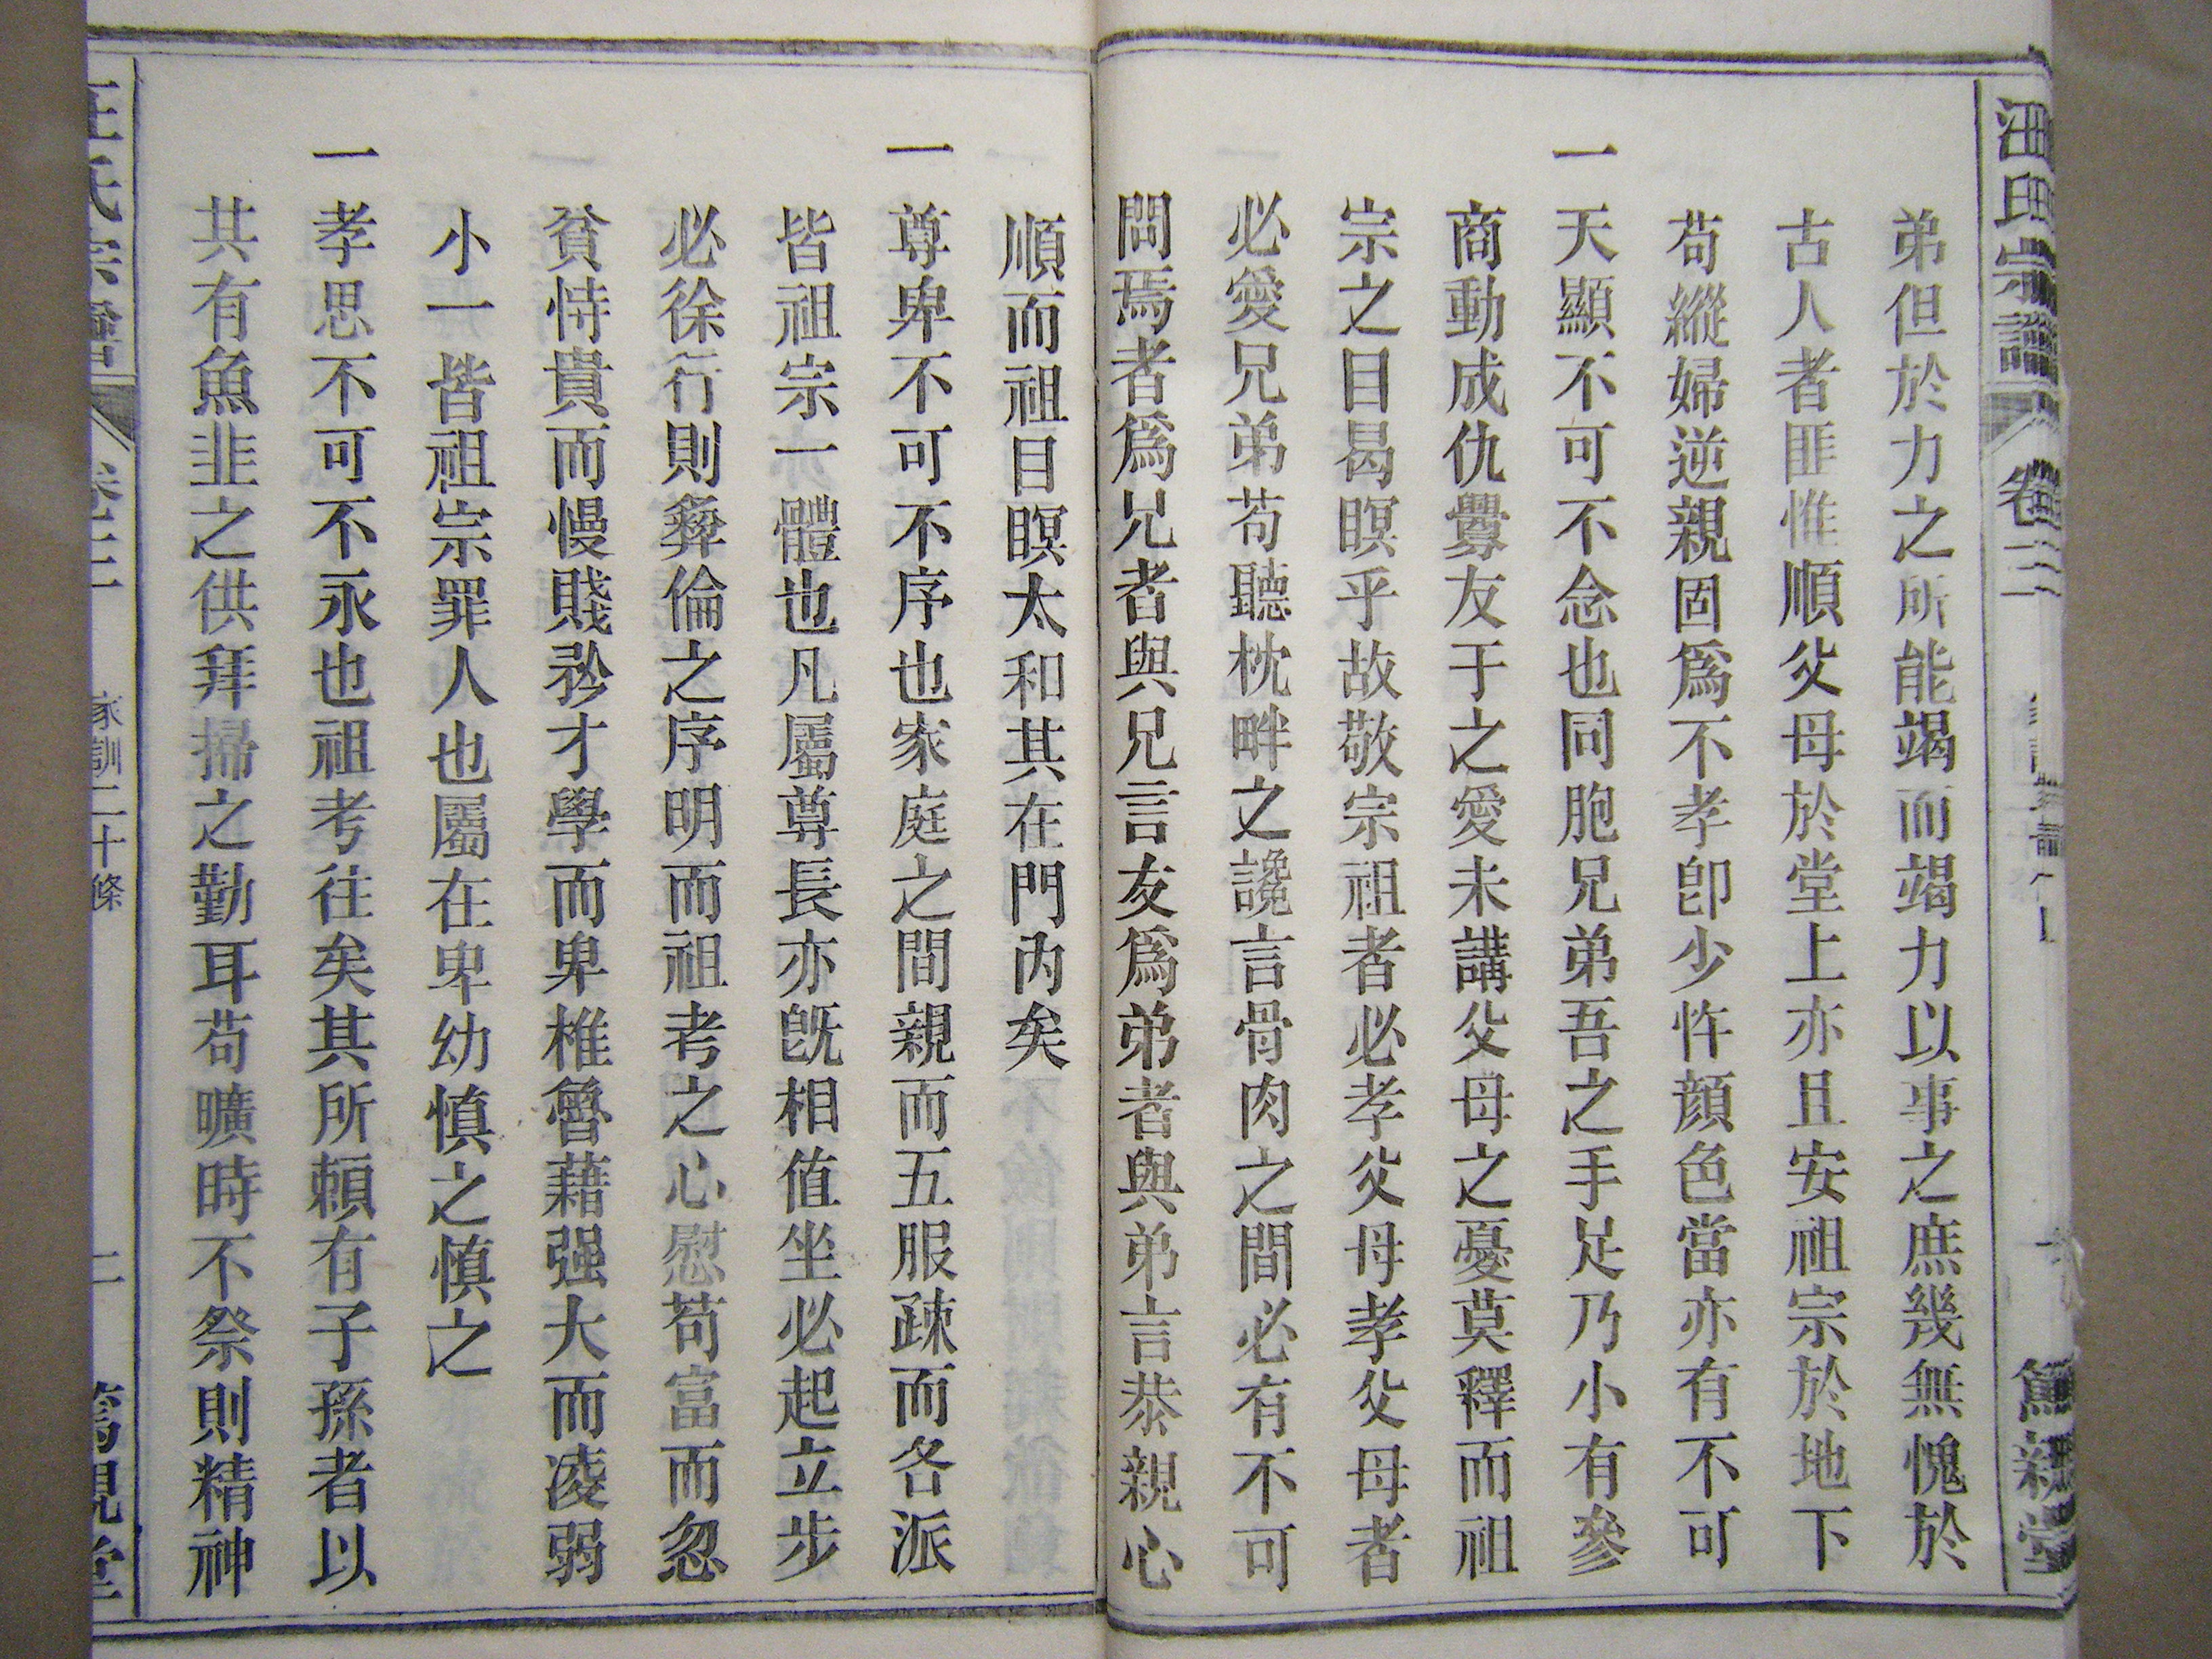 汪氏宗譜 卷三 篤親堂
弟但於力之所能竭而竭力以事之庶幾無愧於
古人者匪惟順父母於堂上亦且安祖宗於地下
苟縱婦逆親固爲不孝卽少忤顏色當亦有不可
一天顯不可不念也同胞兄弟吾之手足乃小有參
商動成仇釁友于之愛未講父母之憂莫釋而祖
宗之目曷瞑乎故敬宗祖者必孝父母孝父母者
必愛兄弟苟聽枕畔之讒言骨肉之間必有不可
問焉者爲兄者與兄言友爲弟者與弟言恭親心
順而祖目瞑太和其在門內矣
一尊卑不可不序也家庭之間親而五服疎而各派
皆祖宗一體也凡屬尊長亦旣相値坐必起立步
必徐行則彜倫之序明而祖考之心慰苟富而忽
貧恃貴而慢賤矜才學而卑椎魯藉强大而凌弱
小一皆祖宗罪人也屬在卑幼慎之慎之
一孝思不可不永也祖考往矣其所賴有子孫者以
其有魚韭之供拜掃之勤耳苟曠時不祭則精神
汪氏宗譜 卷三 家訓二十條 二 篤親堂